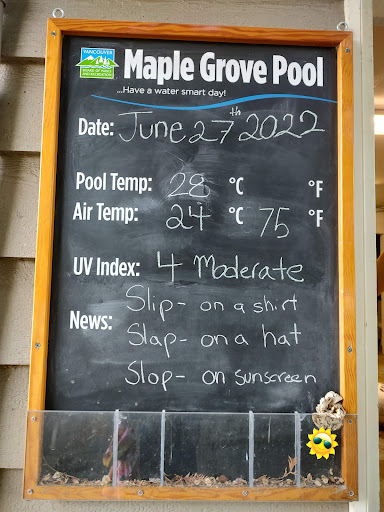 VANCOUVER
BOARD OF PARKS
AND RECREATION
Maple Grove Pool
...Have a water smart day!
Date: June 27th 2022
Pool Temp: 28 °C °F
Air Temp: 24 °C 75 °F
UV Index: 4 Moderate
News: Slip- on a shirt
Slap- on a hat
Slop- on sunscreen